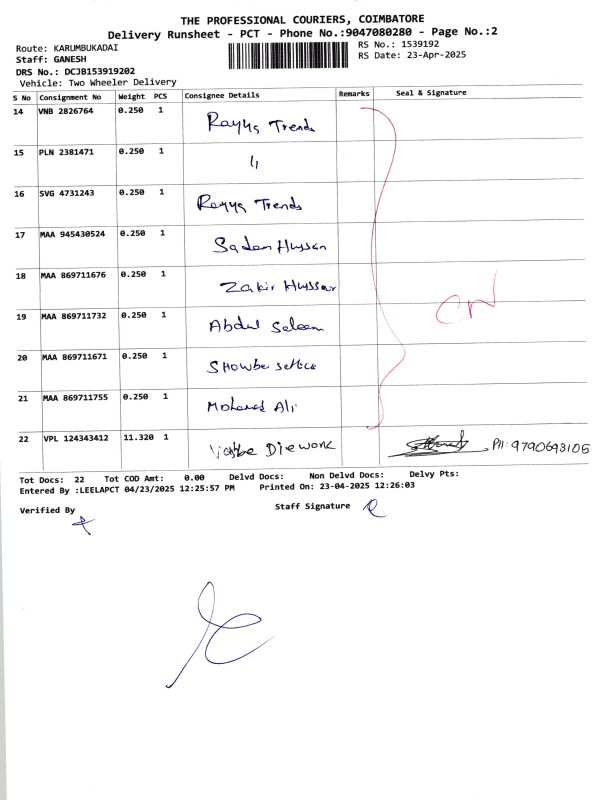 THE PROFESSIONAL COURIERS, COIMBATORE
Delivery Runsheet - PCT - Phone No.:9047080280 - Page No.:2
Route: KARUMBUKADAI
RS No.: 1539192
Staff: GANESH
RS Date: 23-Apr-2025
DRS No.: DCJB153919202
Vehicle: Two Wheeler Delivery
S No Consignment No Weight PCS Consignee Details Remarks Seal & Signature
14 VNB 2826764 0.250 1 Rayyq Trends
15 PLN 2381471 0.250 1 ,,
16 SVG 4731243 0.250 1 Rayyq Trends
17 MAA 945430524 0.250 1 Sadam Hussan
18 MAA 869711676 0.250 1 Zakir Hussar
CN
19 MAA 869711732 0.250 1 Abdul Saleem
20 MAA 869711671 0.250 1
21 MAA 869711755 0.250 1 Mohamed Ali
22 VPL 124343412 11.320 1 Diework PH: 9790693105
Tot Docs: 22 Tot COD Amt: 0.00 Delvd Docs: Non Delvd Docs: Delvy Pts:
Entered By :LEELAPCT 04/23/2025 12:25:57 PM Printed On: 23-04-2025 12:26:03
Verified By Staff Signature